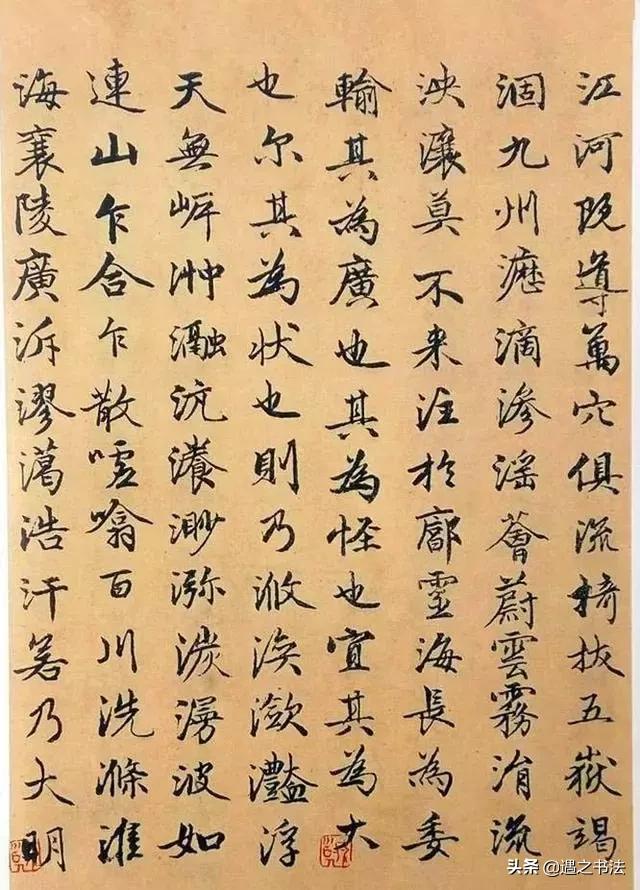 江河既導萬穴俱流掎拔五嶽竭
涸九州瀝滴滲滛薈蔚雲霧涓流
泱瀼莫不来注於廓靈海長為委
輸其為廣也其為怪也宜其為大
也尔其為状也則乃浟湙瀲灩浮
天無岸沖瀜沆瀁渺㳽湠漫波如
連山乍合乍散噓噏百川洗滌淮
海襄陵廣泝漻浩汗若乃大明
头条 @遇之书法